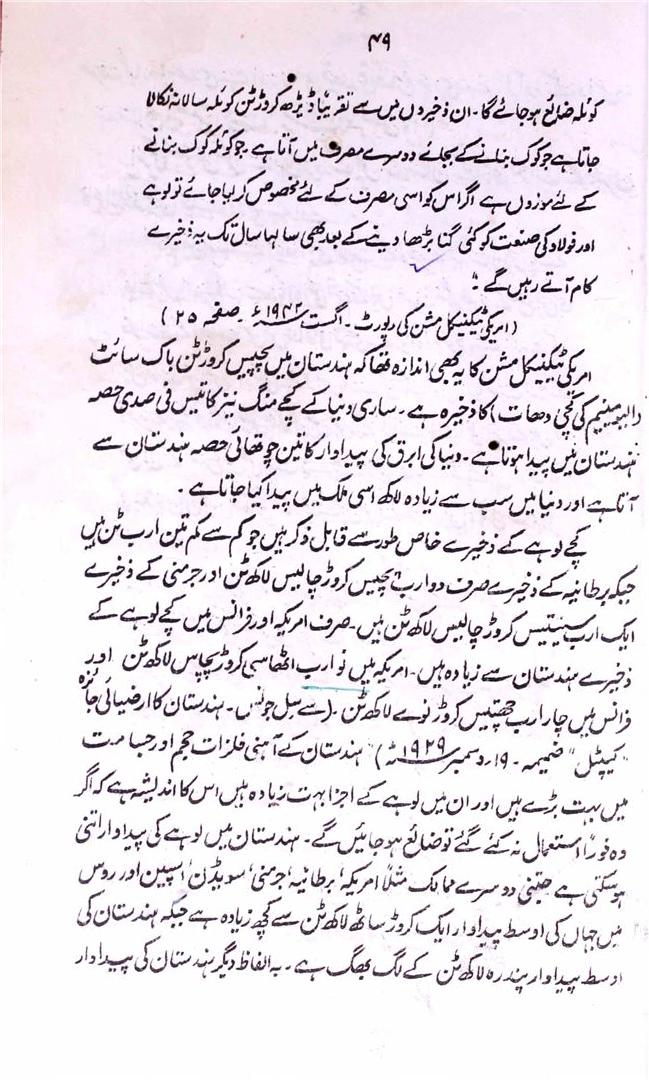 ۴۹
کوئلہ ضائع ہو جائے گا۔ ان ذخیروں میں سے تقریباً ڈیڑھ کروڑ ٹن کوئلہ سالانہ نکالا
جاتا ہے جو کوک بنانے کے بجائے دوسرے مصرف میں آتا ہے۔ جو کوئلہ کوک بنانے
کے لئے موزوں ہے اگر اس کو اسی مصرف کے لئے مخصوص کر لیا جائے تو لوہے
اور فولاد کی صنعت کو کئی گنا بڑھا دینے کے بعد بھی سالہا سال تک یہ ذخیرے
کام آتے رہیں گے "
(امریکی ٹیکنیکل مشن کی رپورٹ۔ اگست ۱۹۴۲ء۔ صفحہ ۲۵)
امریکی ٹیکنیکل مشن کا یہ بھی اندازہ تھا کہ ہندستان میں پچیس کروڑ ٹن باک سائٹ
(الیومینیم کی کچی دھات) کا ذخیرہ ہے۔ ساری دنیا کے کچے منگ نیز کا تیس فی صدی حصہ
ہندستان میں پیدا ہوتا ہے۔ دنیا کی ابرق کی پیداوار کا تین چوتھائی حصہ ہندستان سے
آتا ہے اور دنیا میں سب سے زیادہ لاکھ اسی ملک میں پیدا کیا جاتا ہے۔
کچے لوہے کے ذخیرے خاص طور سے قابل ذکر ہیں جو کم سے کم تین ارب ٹن ہیں
جبکہ برطانیہ کے ذخیرے صرف دو ارب پچیس کروڑ چالیس لاکھ ٹن اور جرمنی کے ذخیرے
ایک ارب سینتیس کروڑ چالیس لاکھ ٹن ہیں۔ صرف امریکہ اور فرانس میں کچے لوہے کے
ذخیرے ہندستان سے زیادہ ہیں۔ امریکہ میں نو ارب اٹھاسی کروڑ پچاس لاکھ ٹن اور
فرانس میں چار ارب چھتیس کروڑ نوے لاکھ ٹن۔ (سے سِل جونس۔ ہندستان کا ارضیاتی جائزہ
"کیپٹل" ضمیمہ۔ ۱۹۔ دسمبر ۱۹۲۹ء) "ہندستان کے آہنی فلزات حجم اور جسامت
میں بہت بڑے ہیں اور ان میں لوہے کے اجزا بہت زیادہ ہیں اس کا اندیشہ ہے کہ اگر
وہ فوراً استعمال نہ کئے گئے تو ضائع ہو جائیں گے۔ ہندستان میں لوہے کی پیداوار اتنی
ہو سکتی ہے جتنی دوسرے ممالک مثلاً امریکہ، برطانیہ، جرمنی، سویڈن، اسپین اور روس
میں جہاں کی اوسط پیداوار ایک کروڑ ساٹھ لاکھ ٹن سے کچھ زیادہ ہے جبکہ ہندستان کی
اوسط پیداوار پندرہ لاکھ ٹن کے لگ بھگ ہے۔ بہ الفاظ دیگر ہندستان کی پیداوار